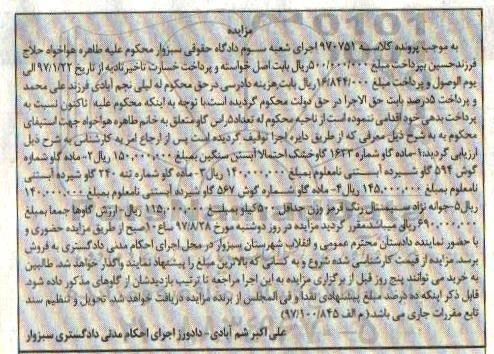 مزایده
به موجب پرونده کلاسه ۹۷۰۷۵۱ اجرای شعبه سوم دادگاه حقوقی سبزوار محکوم علیه طاهره هواخواه حلاج
فرزندحسین بپرداخت مبلغ ۵۰۰/۰۰۰/۰۰۰ریال بابت اصل خواسته و پرداخت خسارت تاخیر تادیه از تاریخ ۹۷/۱/۲۲ الی
یوم الوصول و پرداخت مبلغ ۱۶/۸۴۴/۰۰۰ریال بابت هزینه دادرسی در حق محکوم له لیلی نجم آبادی فرزند علی محمد
و پرداخت ۵درصد بابت حق الاجرا در حق دولت محکوم گردیده است با توجه به اینکه محکوم علیه تاکنون نسبت به
پرداخت بدهی خود اقدامی ننموده است از ناحیه محکوم له تعداد۵راس گاو متعلق به خانم طاهره هواخواه جهت استیفای
محکوم به به شرح ذیل معرفی که از طریق دایره اجرا توقیف گردیده است پس از ارجاع امر به کارشناس به شرح ذیل
ارزیابی گردید:۱-ماده گاو شماره ۱۶۳۳ گاوخشک احتمالا آبستن سنگین بمبلغ ۱۵۰,۰۰۰,۰۰۰ریال۲-ماده گاو شماره
گوش ۵۹۴ گاو شیرده آبستنی نامعلوم بمبلغ ۱۴۰,۰۰۰,۰۰۰ریال ۳-ماده گاو شماره تنه ۲۴۰ گاو شیرده آبستنی
نامعلوم بمبلغ ۱۴۵,۰۰۰,۰۰۰ریال ۴-ماده گاو شماره گوش ۵۶۷ گاو شیرده آبستنی نامعلوم بمبلغ ۱۴۰,۰۰۰,۰۰۰
ریال۵-جوانه نژاد سمینتال رنگ قرمز وزن حداقل ۵۰۰کیلو بمبلغ ۱۱۵,۰۰۰,۰۰۰ ریال-ارزش گاوها جمعا بمبلغ
۶۹۰,۰۰۰,۰۰۰ریال می باشد.مقرر گردید مزایده در روز دوشنبه مورخ ۹۷/۸/۲۸ ساعت ۱۰صبح از طریق مزایده حضوری و
با حضور نماینده دادستان محترم عمومی و انقلاب شهرستان سبزوار در محل اجرای احکام مدنی دادگستری به فروش
برسد. مزایده از قیمت کارشناسی شده شروع و به کسانی که بالاترین مبلغ را پیشنهاد نمایند واگذار خواهد شد. طالبین
به خرید می توانند پنج روز قبل از برگزاری مزایده به این اجرا مراجعه تا ترتیب بازدیدشان از گاوهای مذکور داده شود.
قابل ذکر اینکه ده درصد مبلغ پیشنهادی نقدا و فی المجلس از برنده مزایده دریافت خواهد شد. تحویل و تنظیم سند
تابع مقررات جاری می باشد.(م الف ۹۷/۱۰۰/۸۴۵)
علی اکبر شم آبادی - دادورز اجرای احکام مدنی دادگستری سبزوار